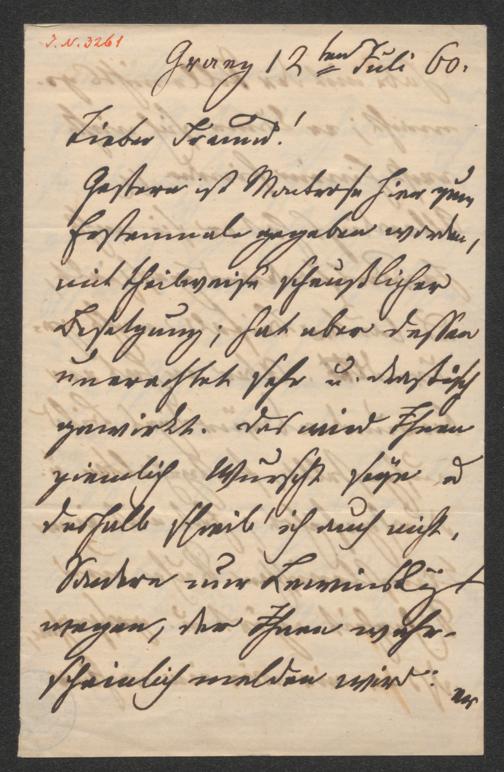 J. N. 3261
Graez 12ten Juli 60.
Lieber Freund!
Gestern ist Montrose hier zum
Erstenmale gegeben worden,
mit theilweise scheußlicher
Besetzung; hat aber dessen
unerachtet sehr u. drastisch
gewirkt. Das wird Ihnen
ziemlich Wurscht seyn u
deßhalb schreib' ich auch nicht,
Sondern nur Lewinsky
wegen, der Ihnen wahr-
scheinlich melden wird:
er